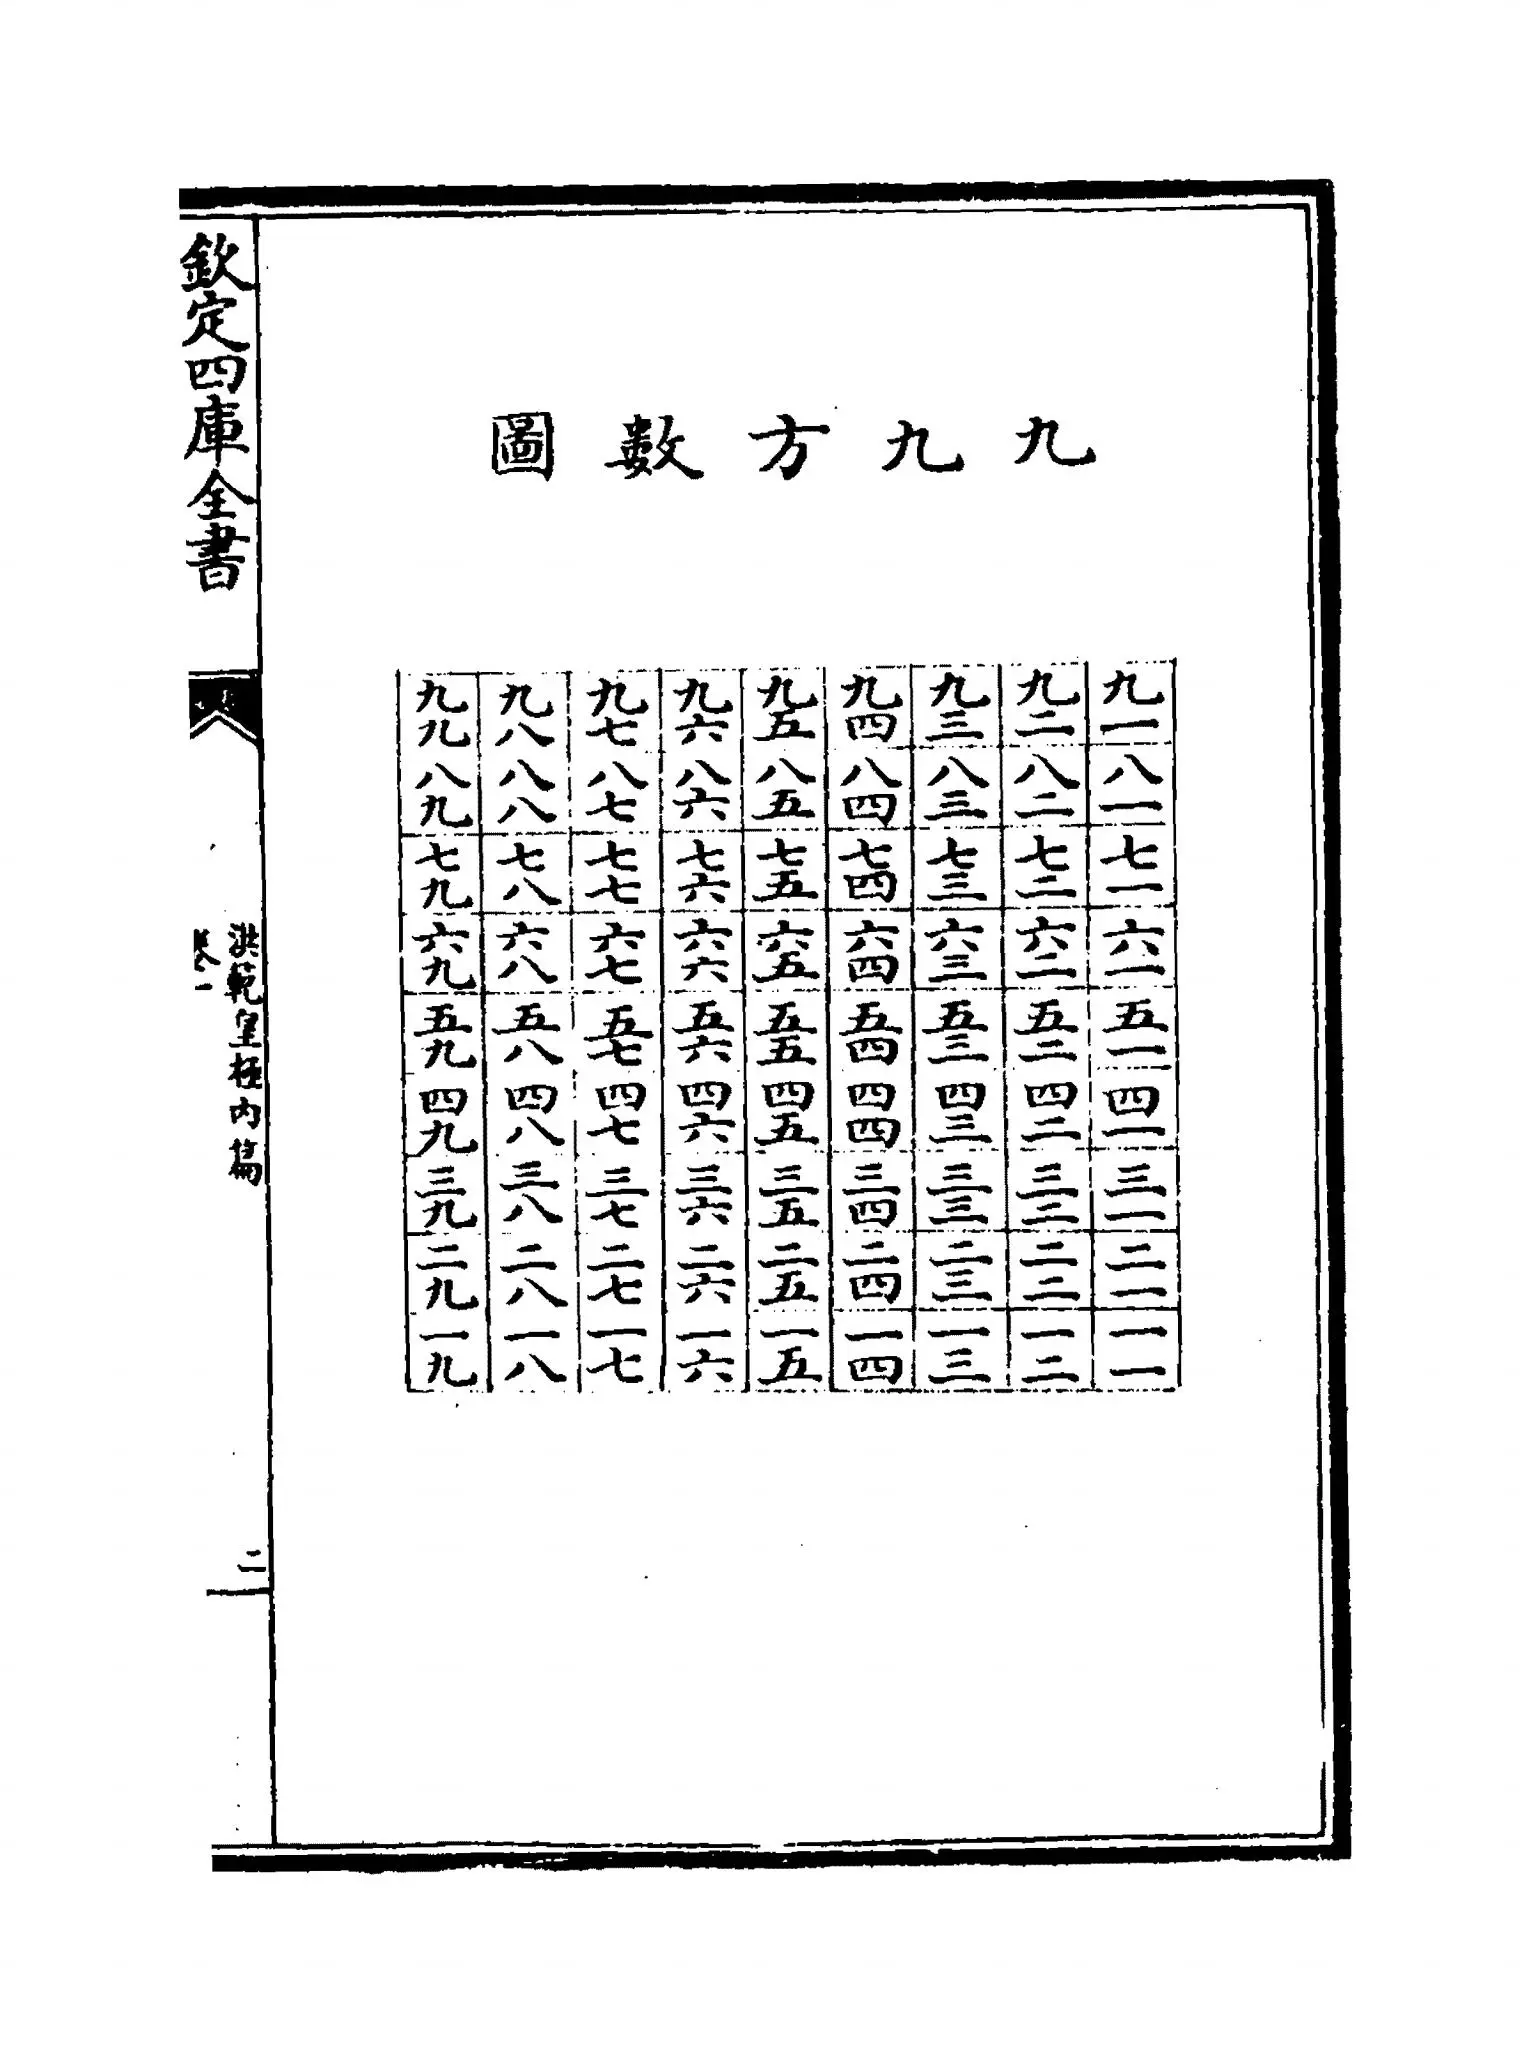 九九方數圖
九一 九二 九三 九四 九五 九六 九七 九八 九九
八一 八二 八三 八四 八五 八六 八七 八八 八九
七一 七二 七三 七四 七五 七六 七七 七八 七九
六一 六二 六三 六四 六五 六六 六七 六八 六九
五一 五二 五三 五四 五五 五六 五七 五八 五九
四一 四二 四三 四四 四五 四六 四七 四八 四九
三一 三二 三三 三四 三五 三六 三七 三八 三九
二一 二二 二三 二四 二五 二六 二七 二八 二九
一一 一二 一三 一四 一五 一六 一七 一八 一九
欽定四庫全書
洪範皇極內篇
卷一
二